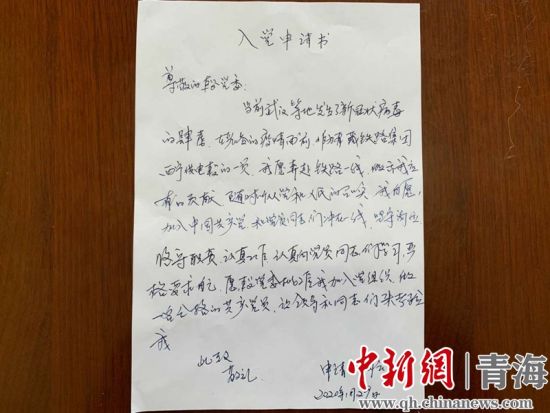 入党申请书
尊敬的段党委:
当前武汉等地发生了新冠状病毒
的肆虐,在危急的疫情面前,作为青藏铁路集团
西宁供电段的一员,我愿奔赴铁路一线,做出我应
有的贡献,随时听从党和人民的召唤,我自愿
加入中国共产党,和党员同志们冲在一线,坚守岗位
恪守职责,认真工作,认真向党员同志们学习,严
格要求自己,愿段党委批准我加入党组织,做
一名合格的共产党员,让领导和同志们来考验
我
此致
敬礼
申请
2020年1月29日
中新网 青海
www.qh.chinanews.com